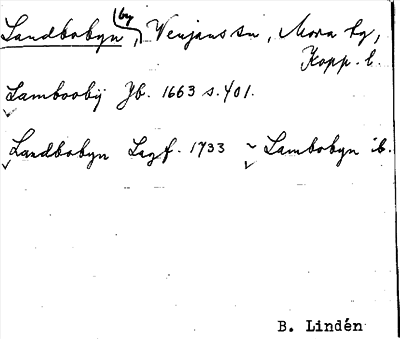 Landbobyn (by), Venjans sn, Mora tg,
Kopp. l.
Lambooby Jb. 1663 s. 401.
Landbobyn Lagf. 1933 ~ Lambobyn ib.
B. Lindén